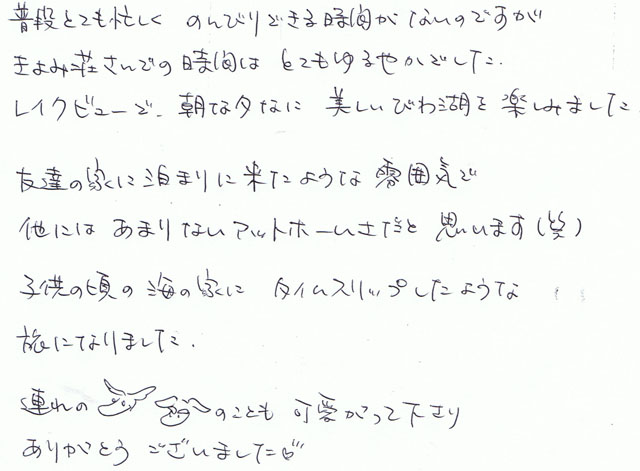 普段とても忙しく のんびりできる時間がないのですが
きよみ荘さんでの時間は とてもゆるやかでした.
レイクビューで、朝な夕なに 美しいびわ湖を楽しみました
友達の家に泊まりに来たような雰囲気で
他にはあまりないアットホームさだと思います(笑)
子供の頃の海の家に タイムスリップしたような
旅になりました.
連れの のことも可愛がって下さり
ありがとうございました